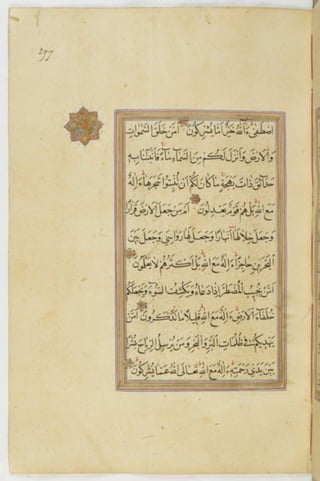 ٢٧٧
اصْطَفَىٰ ءَآللَّهُ خَيْرٌ أَمَّا يُشْرِكُونَ أَمَّنْ خَلَقَ السَّمٰوَاتِ
وَالْأَرْضَ وَأَنْزَلَ لَكُمْ مِنَ السَّمَاءِ مَاءً فَأَنْبَتْنَا بِهِ
حَدَائِقَ ذَاتَ بَهْجَةٍ مَا كَانَ لَكُمْ أَنْ تُنْبِتُوا شَجَرَهَا ءَإِلٰهٌ
مَعَ اللَّهِ بَلْ هُمْ قَوْمٌ يَعْدِلُونَ أَمَّنْ جَعَلَ الْأَرْضَ قَرَارًا
وَجَعَلَ خِلَالَهَا أَنْهَارًا وَجَعَلَ لَهَا رَوَاسِيَ وَجَعَلَ بَيْنَ
الْبَحْرَيْنِ حَاجِزًا ءَإِلٰهٌ مَعَ اللَّهِ بَلْ أَكْثَرُهُمْ لَا يَعْلَمُونَ
أَمَّنْ يُجِيبُ الْمُضْطَرَّ إِذَا دَعَاهُ وَيَكْشِفُ السُّوءَ وَيَجْعَلُكُمْ
خُلَفَاءَ الْأَرْضِ ءَإِلٰهٌ مَعَ اللَّهِ قَلِيلًا مَا تَذَكَّرُونَ أَمَّنْ
يَهْدِيكُمْ فِي ظُلُمَاتِ الْبَرِّ وَالْبَحْرِ وَمَنْ يُرْسِلُ الرِّيَاحَ بُشْرًا
بَيْنَ يَدَيْ رَحْمَتِهِ ءَإِلٰهٌ مَعَ اللَّهِ تَعَالَى اللَّهُ عَمَّا يُشْرِكُونَ